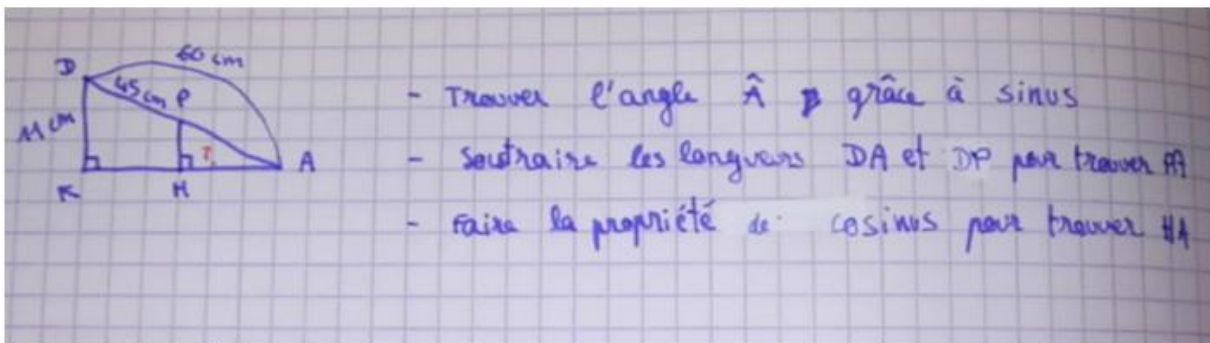 60 cm
D
45 cm P
11 cm
?
A
K
H
- Trouver l'angle Â grâce à sinus
- Soustraire les longueurs DA et DP pour trouver
- Faire la propriété de cosinus pour trouver HA